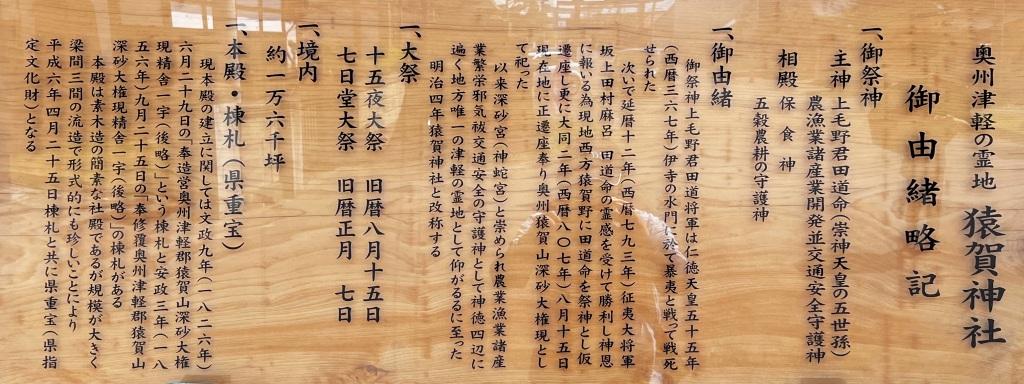 奥州津軽の霊地 猿賀神社
御由緒略記
一、御祭神
主神 上毛野君田道命（崇神天皇の五世孫）
農漁業諸産業開発並交通安全守護神
相殿 保食神
五穀農耕の守護神
一、御由緒
御祭神上毛野君田道将軍は仁徳天皇五十五年
（西暦三六七年）伊寺の水門に於て暴夷と戦って戦死
せられた
次いで延暦十二年（西暦七九三年）征夷大将軍
坂上田村麻呂 田道命の霊感を受けて勝利し神恩
に報いる為現地西方猿賀野に田道命を祭神とし仮
遷座し更に大同二年（西暦八〇七年）八月十五日
現在地に正遷座奉り奥州猿賀山深砂大権現とし
て祀った
以来深砂宮（神蛇宮）と崇められ農業漁業諸産
業繁栄邪気祓交通安全の守護神として神徳四辺に
遍く地方唯一の津軽の霊地として仰がるるに至った
明治四年猿賀神社と改称する
一、大祭
十五夜大祭 旧暦八月十五日
七日堂大祭 旧暦正月 七日
一、境内
約一万六千坪
一、本殿・棟札（県重宝）
現本殿の建立に関しては文政九年（一八二六年）
六月二十九日の「奉造営奥州津軽郡猿賀山深砂大権
現精舎一宇（後略）」という棟札と安政三年（一八
五六年）九月二十五日の「奉修覆奥州津軽郡猿賀山
深砂大権現精舎一宇（後略）」の棟札がある
本殿は素木造の簡素な社殿であるが規模が大きく
梁間三間の流造で形式的にも珍しいことにより
平成六年四月二十五日棟札と共に県重宝（県指
定文化財）となる